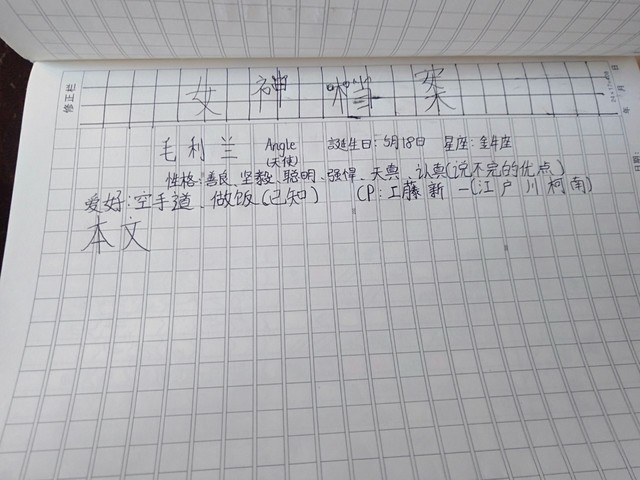 修正栏
女神档案
毛利兰 Angle (天使) 誕生日:5月18日 星座:金牛座
性格:善良、坚毅、聪明、强悍、天真、认真(说不完的优点)
爱好:空手道、做饭(已知) CP:工藤新一(江户川柯南)
本文